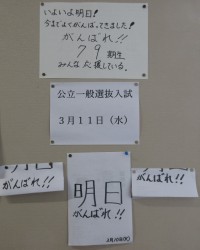 いよいよ明日!
今までよくがんばってきました!
がんばれ!!
79期生
みんな応援している。
公立一般選抜入試
3月11日(水)
明日
がんばれ!!
明日
がんばれ!!
明日
がんばれ!!